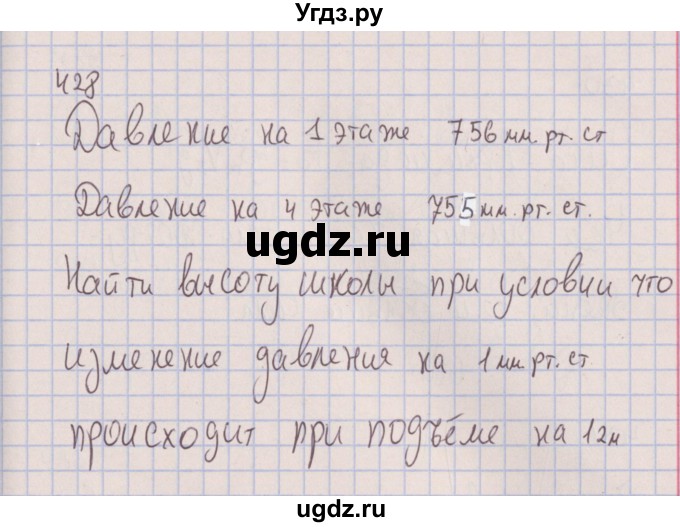 Угдз.ру
428
Давление на 1 этаже 756 мм. рт. ст
Давление на 4 этаже 755 мм. рт. ст.
ugdz.ru
Найти высоту школы при условии что
изменение давления на 1 мм. рт. ст
происходит при подъёме на 12м
ugdz.ru